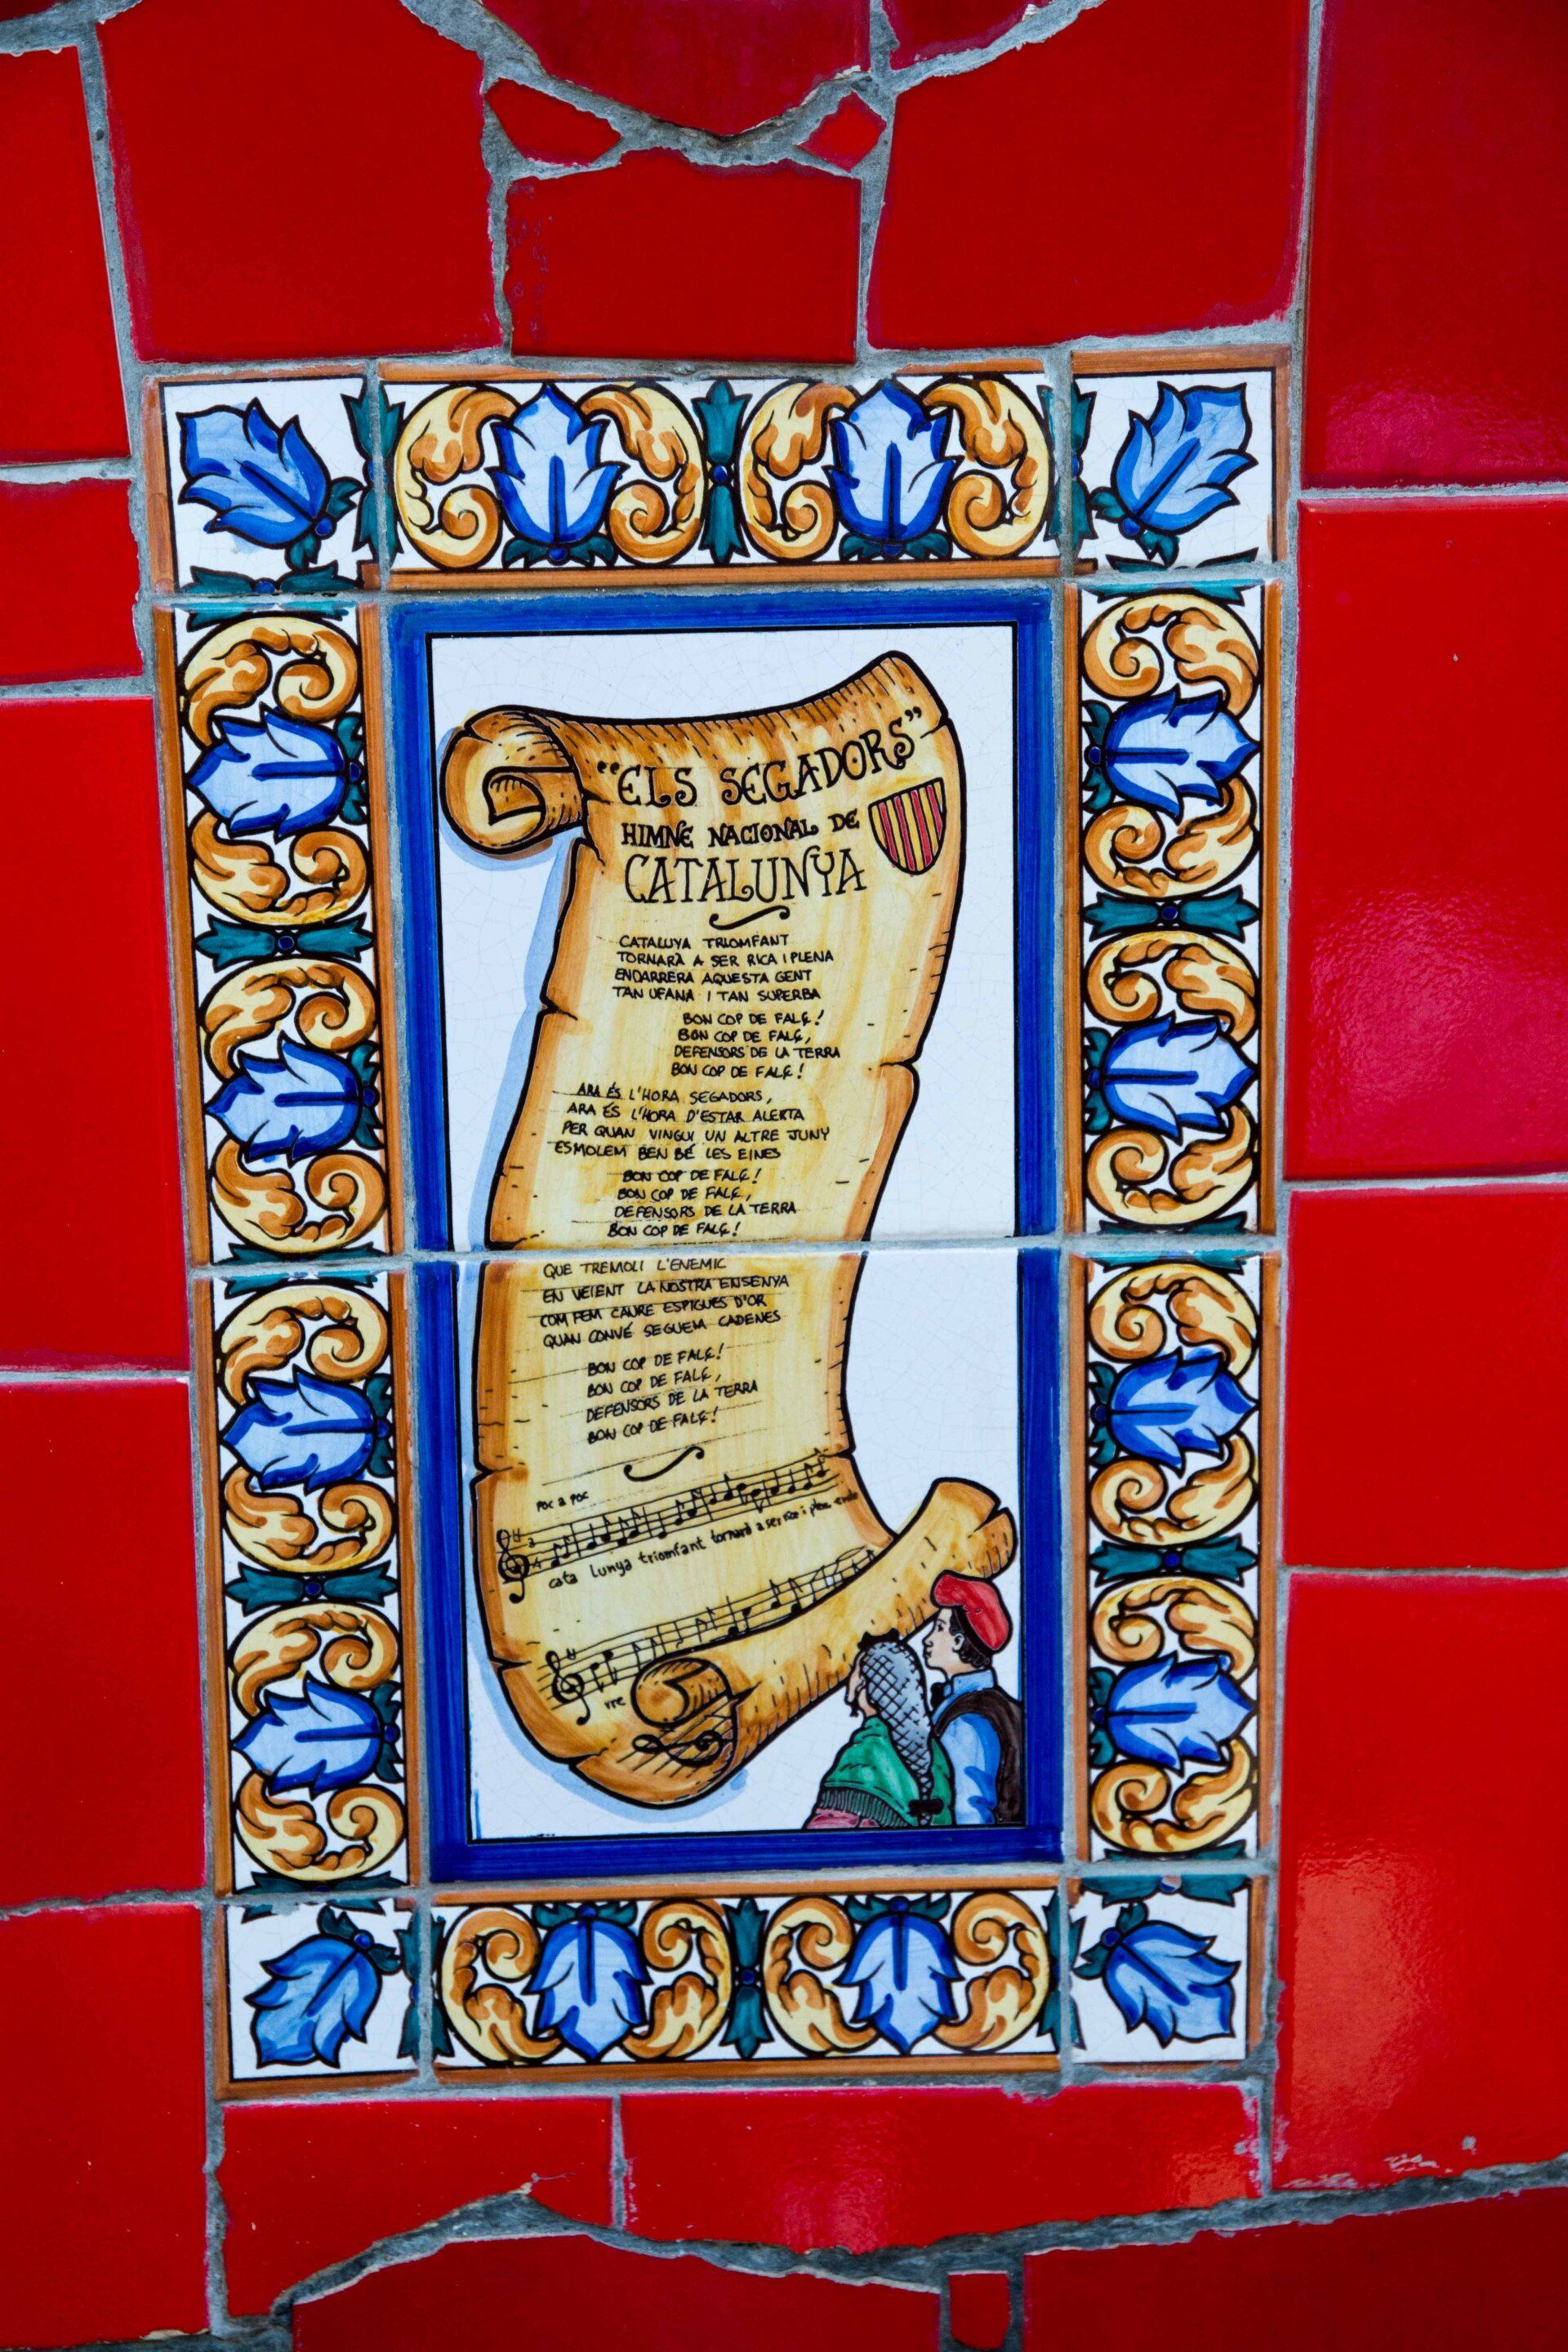 "ELS SEGADORS"
HIMNE NACIONAL DE
CATALUNYA
CATALUYA TRIOMFANT
TORNARÀ A SER RICA I PLENA
ENDARRERA AQUESTA GENT
TAN UFANA I TAN SUPERBA
BON COP DE FALÇ!
BON COP DE FALÇ,
DEFENSORS DE LA TERRA
BON COP DE FALÇ!
ARA ÉS L'HORA SEGADORS,
ARA ÉS L'HORA D'ESTAR ALERTA
PER QUAN VINGUI UN ALTRE JUNY
ESMOLEM BEN BÉ LES EINES
BON COP DE FALÇ!
BON COP DE FALÇ,
DEFENSORS DE LA TERRA
BON COP DE FALÇ!
QUE TREMOLI L'ENEMIC
EN VEIENT LA NOSTRA ENSENYA
COM FEM CAURE ESPIGUES D'OR
QUAN CONVÉ SEGUEM CADENES
BON COP DE FALÇ!
BON COP DE FALÇ,
DEFENSORS DE LA TERRA
BON COP DE FALÇ!
POC A POC
cata lunya triomfant tornarà a ser rica i plena
rre